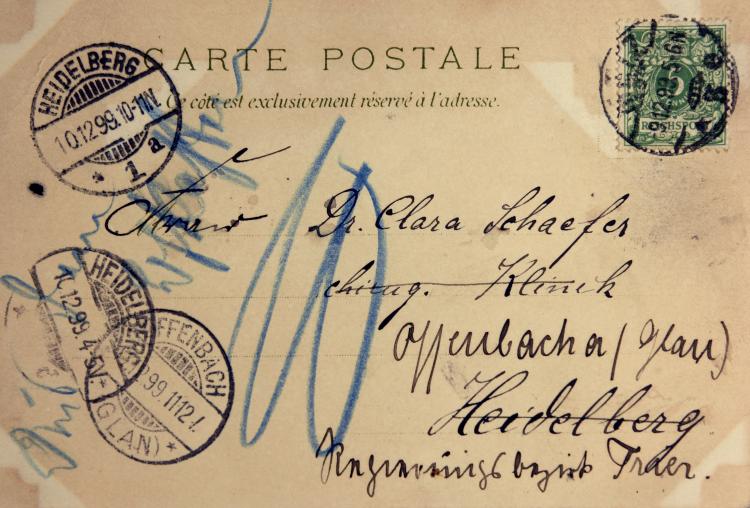 CARTE POSTALE
Ce côté est exclusivement réservé à l'adresse.
HEIDELBERG
10.12.99.10-11N.
* 1 a
5
REICHSPOST
Frau Dr. Clara Schaefer
chirug. Klinik
Offenbach a (Glan)
Heidelberg
Regierungsbezirk Trier.
10
HEIDELBERG
10.12.99.4-5V.
OFFENBACH
.99.11-12V.
(GLAN) *